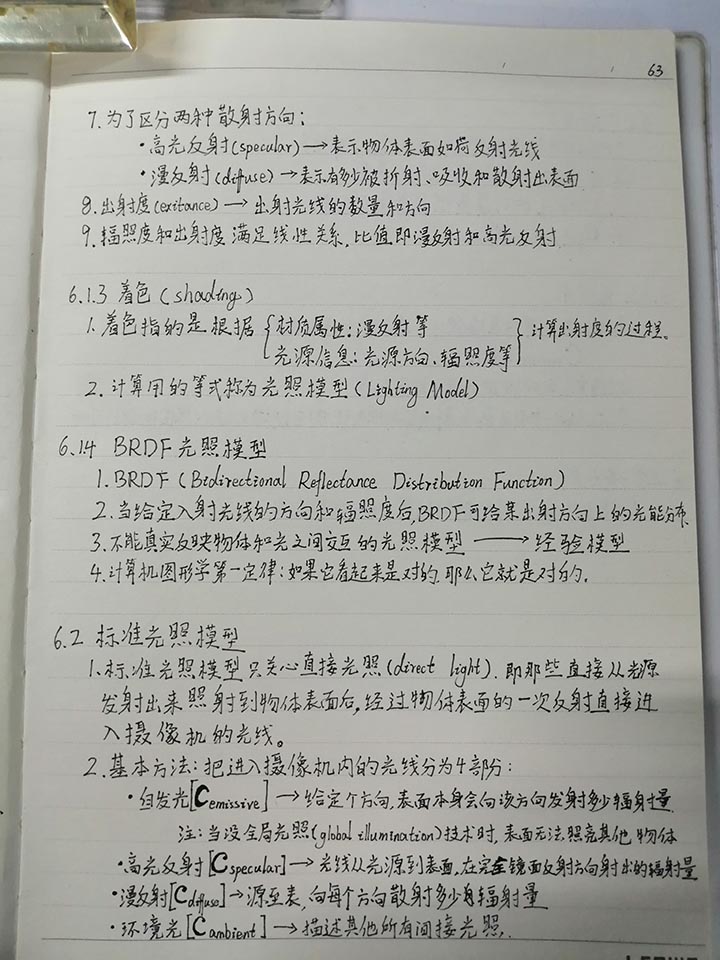 63
7.为了区分两种散射方向：
·高光反射(specular)→表示物体表面如何反射光线
·漫反射(diffuse)→表示有多少被折射、吸收和散射出表面
8.出射度(exitance)→出射光线的数量和方向
9.辐照度和出射度满足线性关系,比值即漫反射和高光反射
6.1.3 着色(shading)
1.着色指的是根据{材质属性:漫反射等}计算出射度的过程。
光源信息:光源方向、辐照度等
2.计算用的等式称为光照模型(Lighting Model)
6.1.4 BRDF光照模型
1.BRDF(Bidirectional Reflectance Distribution Function)
2.当给定入射光线的方向和辐照度后,BRDF可给某出射方向上的光能分布.
3.不能真实反映物体和光之间交互的光照模型→经验模型
4.计算机图形学第一定律:如果它看起来是对的.那么它就是对的.
6.2 标准光照模型
1.标准光照模型只关心直接光照(direct light).即那些直接从光源
发射出来照射到物体表面后,经过物体表面的一次反射直接进
入摄像机的光线。
2.基本方法:把进入摄像机内的光线分为4部分:
·自发光[Cemissive]→给定个方向,表面本身会向该方向发射多少辐射量
注:当没全局光照(global illumination)技术时,表面无法照亮其他物体
·高光反射[Cspecular]→光线从光源到表面,在完全镜面反射方向射出的辐射量
·漫反射[Cdiffuse]→源至表,向每个方向散射多少辐射量
·环境光[Cambient]→描述其他所有间接光照.